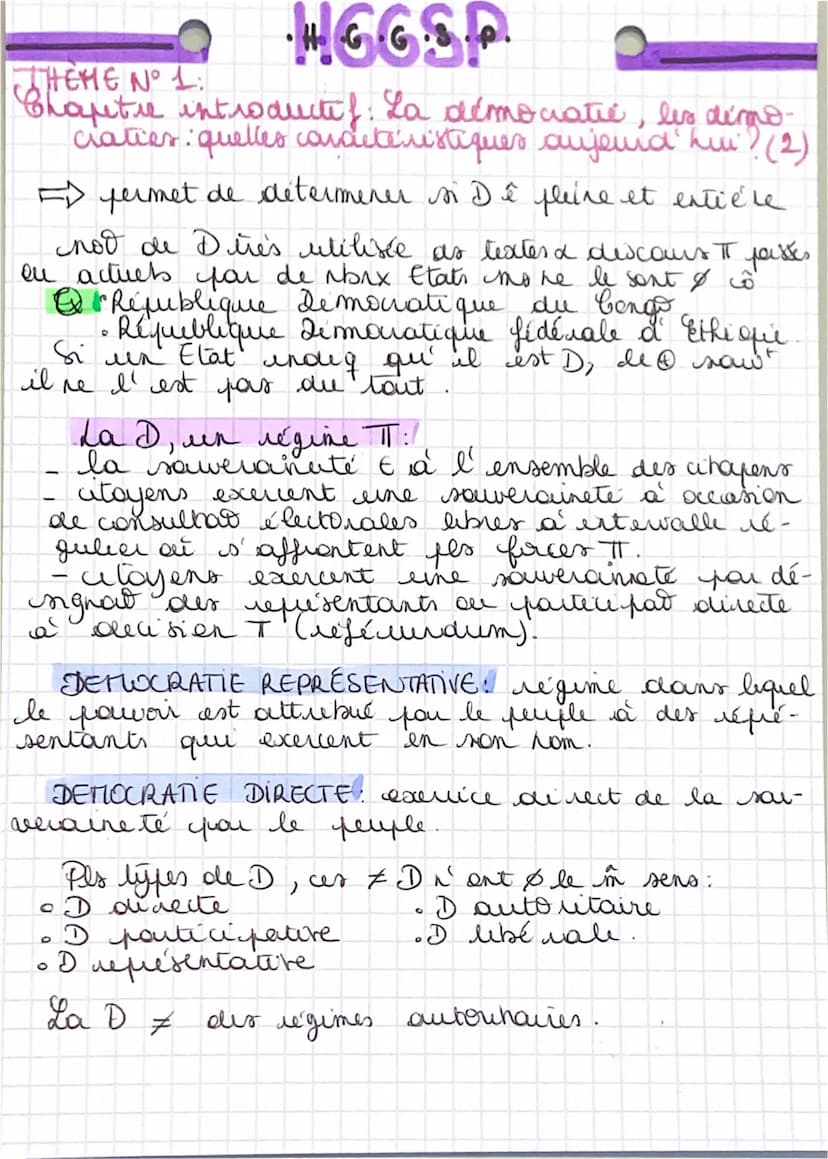 H.G.G.S.P.
THÈME N° 1:
Chapitre introductif: La démocratie, les démo-
craties: quelles caractéristiques aujourd'hui? (2)
⇒ permet de déterminer si D ê pleine et entière
not° de D très utilisée ds textes d discours π passés
ou actuels par de nbrx Etats ms ne le sont ∅ cô
Ex • République Démocratique du Congo
• République Démocratique fédérale d'Ethiopie.
Si un Etat indiq qu'il est D, de ⊕ souvt
il ne l'est pas du tout.
La D, un régime π:
- la souveraineté ∈ à l'ensemble des citoyens
- citoyens exercent une souveraineté à occasion
de consultat° électorales libres à intervalle ré-
gulier où s'affrontent pls forces π.
- citoyens exercent une souveraineté par dé-
signat° des représentants ou participat° directe
à décision π (référundum).
DEMOCRATIE REPRÉSENTATIVE: régime dans lequel
le pouvoir est attribué par le peuple à des repré-
sentants qui exercent en son nom.
DEMOCRATIE DIRECTE: exercice direct de la sou-
veraineté par le peuple.
Pls types de D, ces ≠ D n'ont ∅ le m̂ sens:
• D directe
• D autoritaire
• D participative
• D libérale.
• D représentative
La D ≠ des régimes autoritaires.